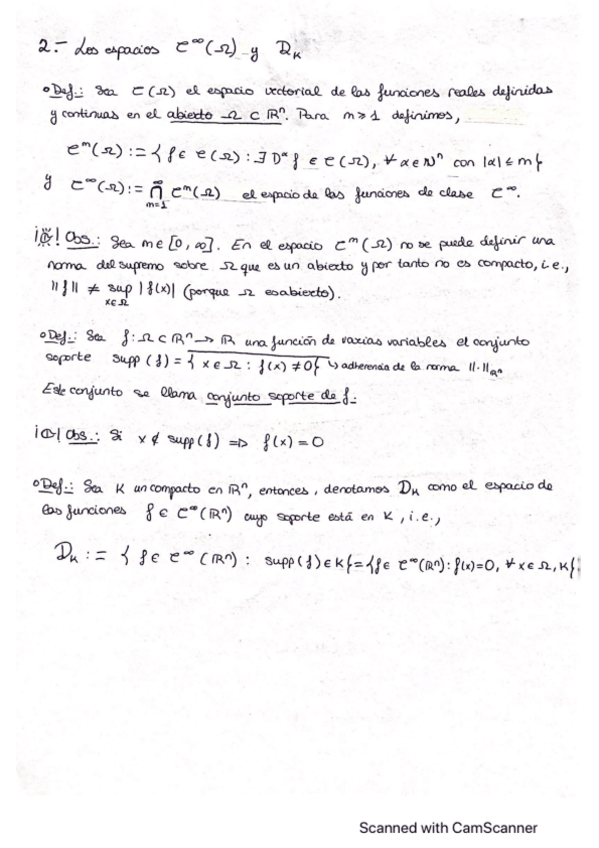 2.- Los espacios C^∞(Ω) y D_K
Def.: Sea C(Ω) el espacio vectorial de las funciones reales definidas
y continuas en el abierto Ω ⊂ ℝⁿ. Para m ≥ 1 definimos,
C^m(Ω) := { f ∈ C(Ω) : ∃ D^α f ∈ C(Ω), ∀ α ∈ ℕⁿ con |α| ≤ m }
y C^∞(Ω) := ∩_{m=1}^∞ C^m(Ω) el espacio de las funciones de clase C^∞.
Obs.: Sea m ∈ [0, ∞]. En el espacio C^m(Ω) no se puede definir una
norma del supremo sobre Ω que es un abierto y por tanto no es compacto, i.e.,
||f|| ≠ sup_{x∈Ω} |f(x)| (porque Ω es abierto).
Def.: Sea f: Ω ⊂ ℝⁿ → ℝ una función de varias variables el conjunto
soporte supp(f) = \overline{{ x ∈ Ω : f(x) ≠ 0 }} ↳ adherencia de la norma ||·||_{ℝⁿ}
Este conjunto se llama conjunto soporte de f.
Obs.: Si x ∉ supp(f) ⇒ f(x) = 0
Def.: Sea K un compacto en ℝⁿ, entonces, denotamos D_K como el espacio de
las funciones f ∈ C^∞(ℝⁿ) cuyo soporte está en K, i.e.,
D_K := { f ∈ C^∞(ℝⁿ) : supp(f) ∈ K } = { f ∈ C^∞(ℝⁿ) : f(x) = 0, ∀ x ∈ Ω, K }
Scanned with CamScanner